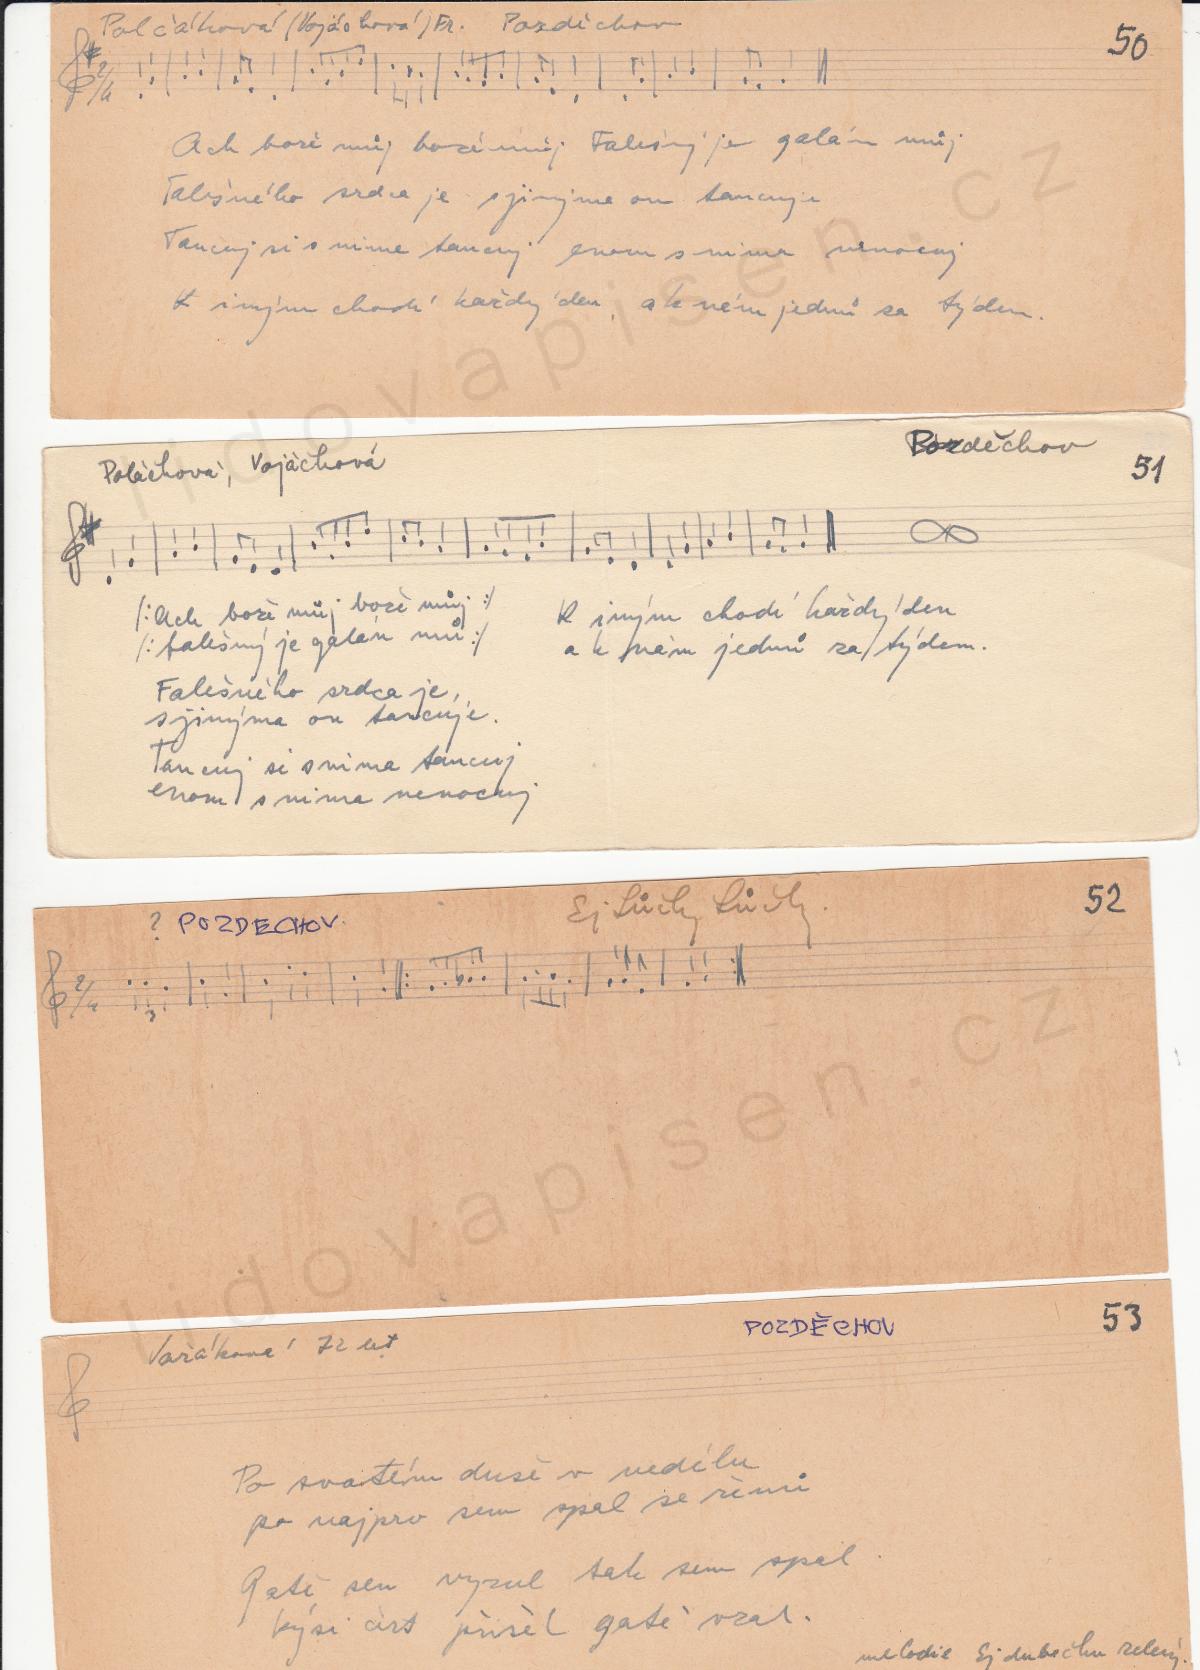 Polčáková (Vojáčková) Fr. Pozděchov
50
2/4
Ach bože můj bože můj Falešný je galán můj
Falešného srdca je s jinýma on tancuje
Tancuj si s nima tancuj enom s nima nenocuj
K iným chodí každý den, a k nám jednú za týden.
Poláchová, Vojáčhová
Pozděchov
51
/: Ach bože můj bože můj :/
/: falešný je galán mů :/
Falešného srdca je,
s jinýma on tancuje.
Tancuj si s nima tancuj
enom s nima nenocuj
K iným chodí každý den
a k nám jednů za týden.
? POZDECHOV.
Ej
52
2/4
3
Vařáková 72 let
POZDĚCHOV
53
Po svatém duše v nedělu
po najprv sem spal se ženů
Gatě sem vyzul tak sem spal
kýsi čert přišel gatě vzal.
melodie Ej dubečku zelený.
lidovapisen.cz
lidovapisen.cz